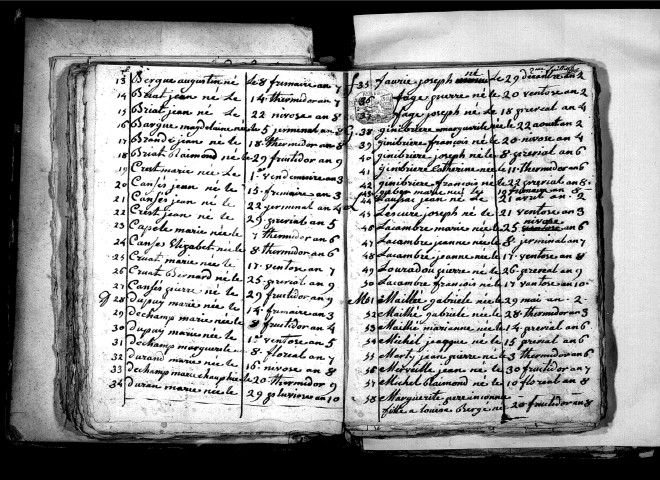 13 Bergue augustin né le 8 frumaire an 7
14 Briat jean né Le 14 thermidor an 7
15 Briat jean né Le 22 nivose an 8
16 Bargue magdelaine née le 5 jerminal an 8
17 Brande jean né le 18 thermidor an 8
18 Briat blaimond né le 29 fruitidor an 9
19 Crest marie née Le 1er vendemiaire an 3
20 Canses jean né le 15 frumaire an 3
21 Canses jean né Le 22 germinal an 4
22 Crest jean né le 29 prerial an 5
23 Capele marie née le 7 thermidor an 6
24 Canses Elizabet née le 8 thermidor an 6
25 Cruat marie née le 17 ventose an 7
26 Cruat Bernard né le 25 prerial an 9
27 Canses pierre né le 29 fruitidor an 9
28 Dupuy marie née le 14 frumaire an 3
29 Dechamp marie née le 8 fruitidor an 4
30 Dupuy marie née le 1er ventose an 5
31 Dechamp marguerite 8 floreal an 7
32 Durand marie née le 16 nivose an 8
33 Dechamp marie née le 20 thermidor 9
34 Duran marie née le 29 pluviose an 10
35 faurie joseph né Le 29 décembre an 2
36 fage pierre né le 20 ventose an 2
37 fage joseph né Le 18 prereal an 4
38 ginibriere marguerite née le 22 aout an 2
39 ginibriere françois né le 20 nivose an 4
40 ginibriere joseph né le 8 prerial an 6
41 ginibriere Catherine née le 11 thermidor an 6
42 ginibriere françois né le 22 prerial an 8
43 marie née le 19 frimaire an 8
44 jean né Le 21 avril an 2
45 Lescure joseph né le 21 ventose an 3
46 Lacambre marie née le 25 nivose an 6
47 Lacambre jeanne née le 8 jerminal an 7
48 Lacambre jeanne née le 17 ventose an 8
49 Louradou pierre né le 26 prerial an 9
50 Lacambre françois né le 17 ventose an 10
51 Mailhé gabriele née le 29 mai an 2
52 Mailhé gabriele née le 28 thermidor an 3
53 Mailhé marianne née le 14 prerial an 6
54 Michel jacque né le 15 prerial an 6
55 Marty jean pierre né le 3 thermidor an 6
56 Merveille jean né le 30 fruitidor an 7
57 Michel blaimond né le 10 floréal an 8
58 Marguerite pere inconnu
fille a louise Bergé née le 20 fruitidor an 8